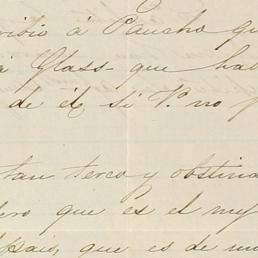 á Pancho qu
á Glass- que hab
de él si V. no p
tan terco y obstina
pero que es el mej
pais, que es de mu